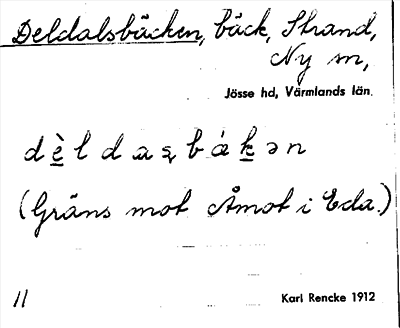 Deldalsbäcken, bäck, Strand,
Ny sn,
Jösse hd, Värmlands län.
(Gräns mot Åmot i Eda.)
11
Karl Rencke 1912